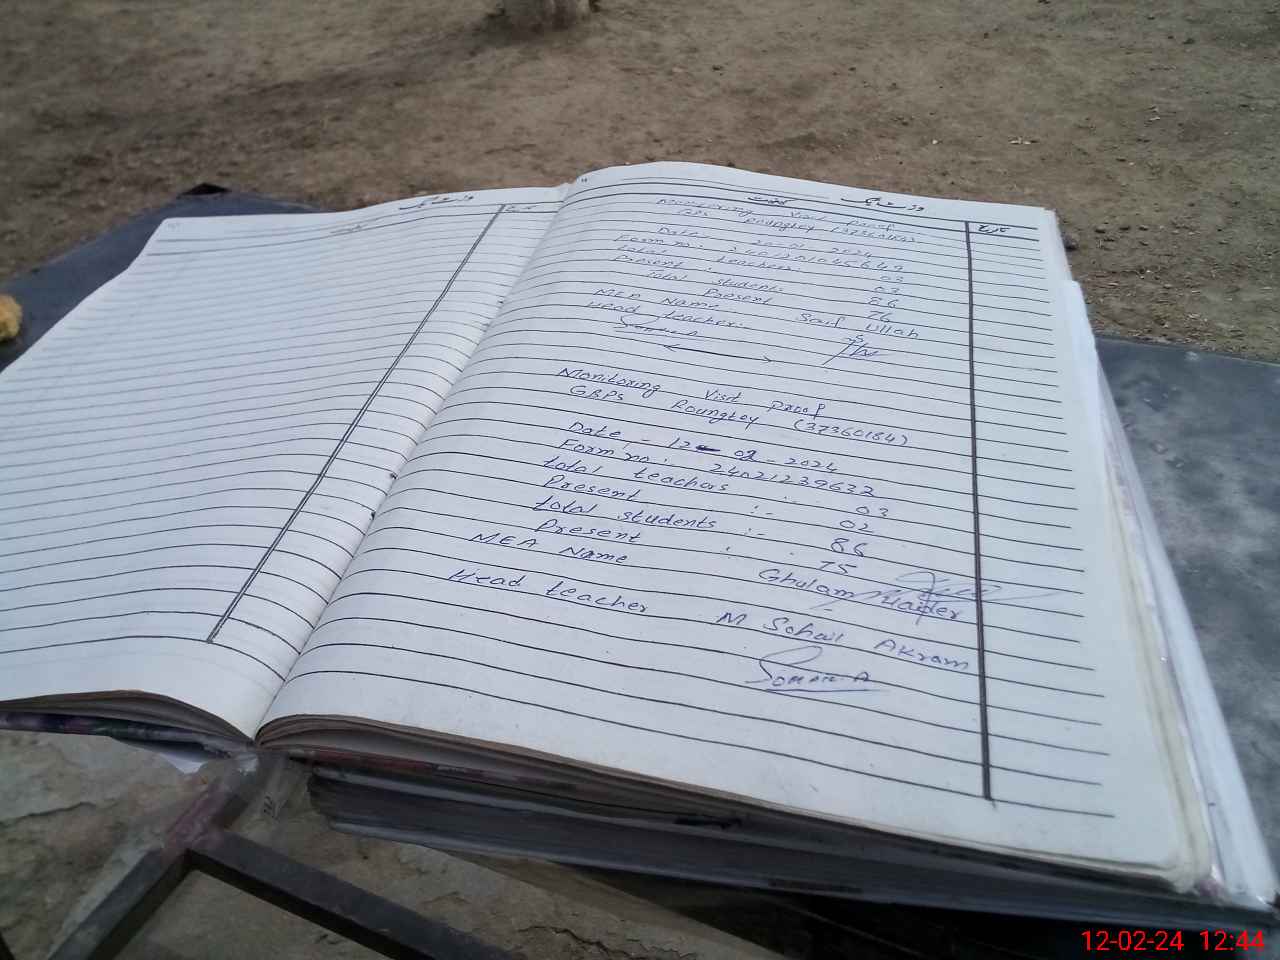 Monitoring Visit Proof
GBPS Roungtey (37360184)
Date: 20-01-2024
Form no:
total teachers: 03
Present: 03
Total students 86
Present 76
MEA Name: Saif Ullah
Head teacher:
Monitoring Visit Proof
GBPS Roungtey (37360184)
Date - 12-02-2024
Form no: 24021239632
total teachers : 03
Present :- 02
total students :- 86
Present : 75
MEA Name Ghulam Haider
Head teacher M Sohail Akram
12-02-24 12:44